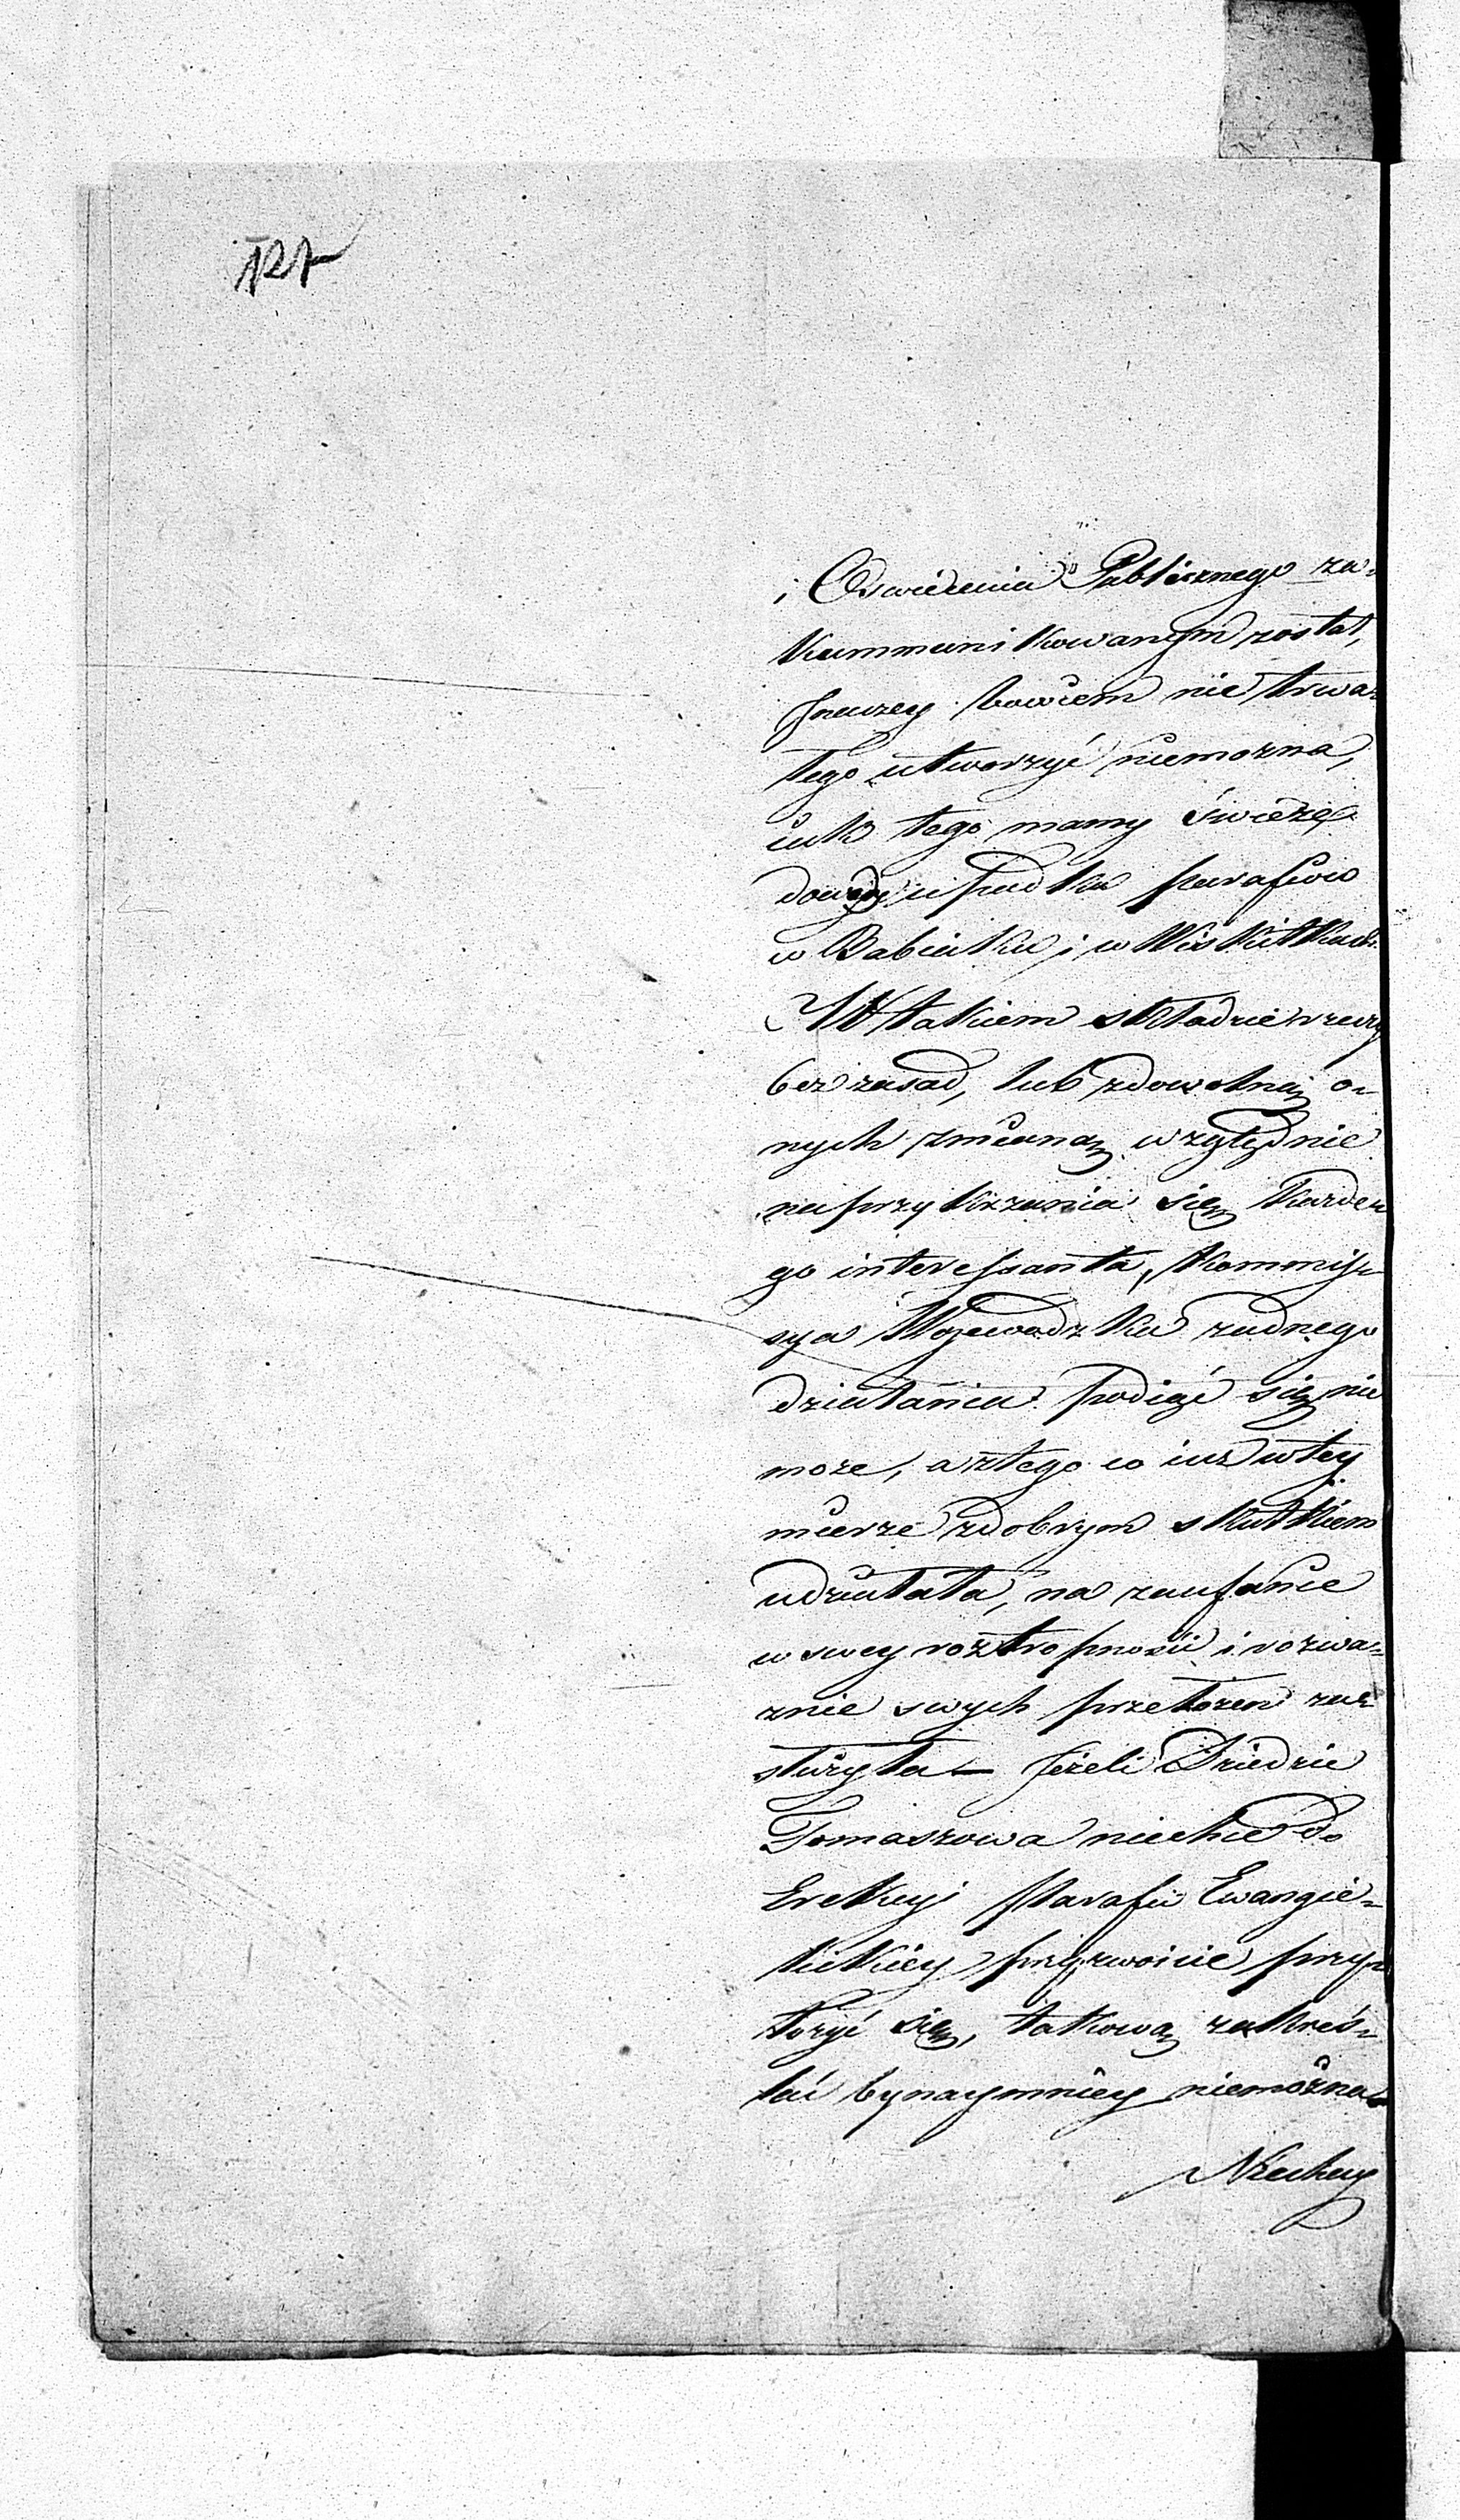 121
i Oswiecenia Publicznego za-
kommunikowanym został,
Jnaczey bowiem nic trwa-
łego utworzyć niemozna,
iak tego mamy świeże
dowody upadku parafiow
w Babiaku i w Wiskitkach.
W takiem składzie rzeczy
bez zasad, lub zdowolną o-
nych zmianą względnie
naprzykrzania się każde-
go interessanta, Kommis-
sya Wojewodzka zadnego
działania podiąć się nie
moze, a ztego co iuz w tey
mierze zdobrym skutkiem
udziałała, na zaufanie
w swey roztropności i rozwa-
znie swych przełozeń zas-
łuzyła — Jeżeli Dziedzic
Tomaszowa niechce do
Erekcyi Parafii Ewangie-
lickiey przyzwoicie przy-
łozyć się, takową zakreś-
lać bynaymniey niemożna
Niechay